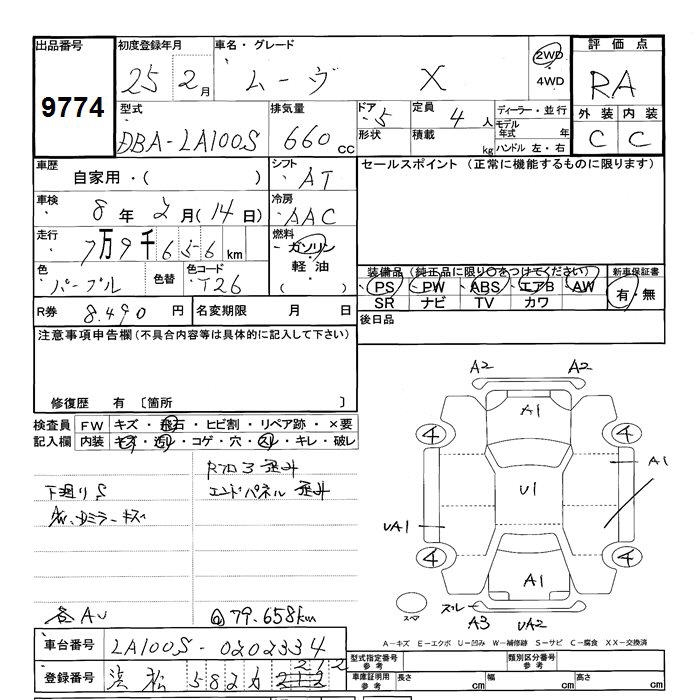 出品番号 初度登録年月 車名・グレード 2WD 4WD 評価点
9774 25 2月 ムーヴ X RA
型式 排気量 ドア 定員 ディーラー・並行 外装 内装
DBA-LA100S 660cc 5 4人 モデル年式 年 C C
形状 積載 kg ハンドル 左・右
車歴 自家用・( ) シフト AT セールスポイント (正常に機能するものに限ります)
車検 8年2月(14日) 冷房 AAC
走行 7万9千656km 燃料 ガソリン・軽油 ( )
色 パープル 色替 色コード T26
装備品 (純正品に限り○をつけてください) 新車保証書
PS PW ABS エアB AW 有・無
SR ナビ TV カワ
R券 8.490円 名変期限 月 日 後日品
注意事項申告欄(不具合内容等は具体的に記入して下さい)
修復歴 有 〔箇所 〕
検査員記入欄 FW キズ・飛石・ヒビ割・リペア跡・×要
内装 キズ・汚レ・コゲ・穴・スレ・キレ・破レ
Rフロア歪ミ
下廻りS エンドパネル歪ミ
ミラーキズ
各AU @79.658km
A2 A2
A1
4 4
A1
U1
UA1
4 4
A1
スペア スレ A3 UA2
A-キズ E-エクボ U-凹み W-補修跡 S-サビ C-腐食 XX-交換済
車台番号 LA100S-0202334
型式指定番号 参考 類別区分番号 参考
登録番号 浜松 582 カ 212 262
車庫証明用 参考 長さ cm 幅 cm 高さ cm